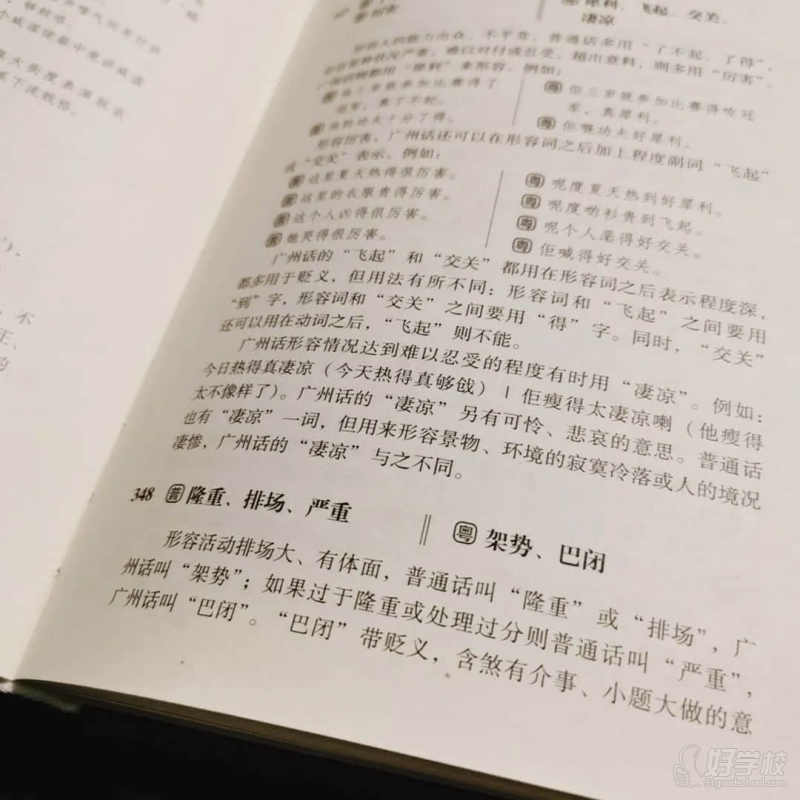 犀利、飞起、交关、
凄凉
厉害
形容人的能力出众、不平常，普通话多用“了不起、了得”，
超出意料，则多用“厉害”。
广州话则都用“犀利”来形容。例如：
他三岁就参加比赛得了
冠军，真了不起。
佢三岁就参加比赛得咗冠
军，真犀利。
他的功夫十分了得。
佢嘅功夫好犀利。
形容厉害，广州话还可以在形容词之后加上程度副词“飞起”
或“交关”表示。例如：
普 这里夏天热得很厉害。
普 这里的衣服贵得厉害。
普 这个人凶得很厉害。
普 她哭得很厉害。
粤 呢度夏天热到好犀利。
粤 呢度啲衫贵到飞起。
粤 呢个人恶得好交关。
粤 佢喊得好交关。
广州话的“飞起”和“交关”都用在形容词之后表示程度深，
都多用于贬义，但用法有所不同：形容词和“飞起”之间要用
“到”字，形容词和“交关”之间要用“得”字。同时，“交关”
还可以用在动词之后，“飞起”则不能。
广州话形容情况达到难以忍受的程度有时用“凄凉”。例如：
今日热得真凄凉（今天热得真够戗）｜佢瘦得太凄凉喇（他瘦得
太不像样了）。广州话的“凄凉”另有可怜、悲哀的意思。普通话
也有“凄凉”一词，但用来形容景物、环境的寂寞冷落或人的境况
凄惨，广州话的“凄凉”与之不同。
348 普 隆重、排场、严重
粤 架势、巴闭
形容活动排场大、有体面，普通话叫“隆重”或“排场”，广
州话叫“架势”；如果过于隆重或处理过分则普通话叫“严重”，
广州话叫“巴闭”。“巴闭”带贬义，含煞有介事、小题大做的意
好学校
91goodschool.com